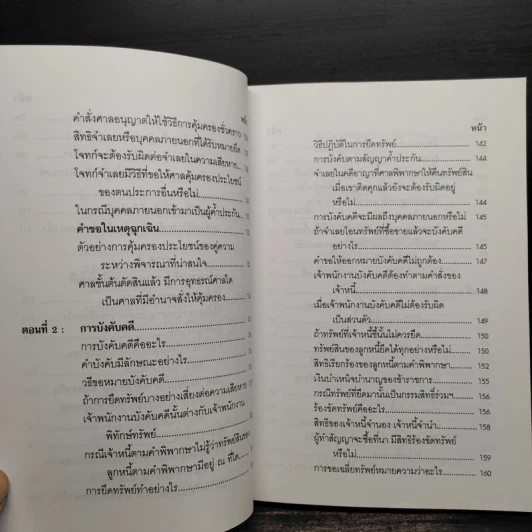 หน้า
คำสั่งศาลอนุญาตให้ใช้วิธีการคุ้มครองชั่วคราว
สิทธิจำเลยหรือบุคคลภายนอกที่ได้รับหมายยึด
โจทก์จะต้องรับผิดต่อจำเลยในความเสียหาย
โจทก์จำเลยมีวิธีที่ขอให้ศาลคุ้มครองประโยชน์
ของตนประการอื่นหรือไม่
ในกรณีบุคคลภายนอกเข้ามาเป็นผู้ค้ำประกัน
คำขอในเหตุฉุกเฉิน
ตัวอย่างการคุ้มครองประโยชน์ของคู่ความ
ระหว่างพิจารณาที่น่าสนใจ
ศาลชั้นต้นตัดสินแล้ว มีการอุทธรณ์ศาลใด
เป็นศาลที่มีอำนาจสั่งให้คุ้มครอง
ตอนที่ 2 : การบังคับคดี
การบังคับคดีคืออะไร
คำบังคับมีลักษณะอย่างไร
วิธีขอหมายบังคับคดี
ถ้าการยึดทรัพย์บางอย่างเสี่ยงต่อความเสียหาย
เจ้าพนักงานบังคับคดีนั้นต่างกับเจ้าพนักงาน
พิทักษ์ทรัพย์
กรณีเจ้าหนี้ตามคำพิพากษาไม่รู้ว่าทรัพย์สินของ
ลูกหนี้ตามคำพิพากษามีอยู่ ณ ที่ใด
การยึดทรัพย์ทำอย่างไร
หน้า
วิธีปฏิบัติในการยึดทรัพย์ 142
การบังคับตามสัญญาค้ำประกัน 144
จำเลยในคดีอาญาที่ศาลพิพากษาให้คืนทรัพย์สิน
เมื่อเขาติดคุกแล้วยังจะต้องรับผิดอยู่
หรือไม่ 144
การบังคับคดีจะมีผลถึงบุคคลภายนอกหรือไม่ 145
ถ้าจำเลยโอนทรัพย์ที่ซื้อขายแล้วจะบังคับคดี
อย่างไร 145
คำขอให้ออกหมายบังคับคดีไม่ถูกต้อง 147
เจ้าพนักงานบังคับคดีต้องทำตามคำสั่งของ
เจ้าหนี้ 148
เมื่อเจ้าพนักงานบังคับคดีไม่ต้องรับผิด
เป็นส่วนตัว 149
ถ้าทรัพย์ที่เจ้าหนี้ชี้นั้นไม่ควรยึด 150
ทรัพย์สินของลูกหนี้ยึดได้ทุกอย่างหรือไม่ 150
สิทธิเรียกร้องของลูกหนี้ตามคำพิพากษา 152
เงินบำเหน็จบำนาญของข้าราชการ 155
กรณีทรัพย์ที่ยึดมานั้นเป็นกรรมสิทธิ์ร่วมฯ 156
ร้องขัดทรัพย์คืออะไร 156
สิทธิของเจ้าหนี้จำนอง เจ้าหนี้จำนำ 158
ผู้ทำสัญญาจะซื้อที่นา มีสิทธิร้องขัดทรัพย์
หรือไม่ 159
การขอเฉลี่ยทรัพย์หมายความว่าอะไร 160